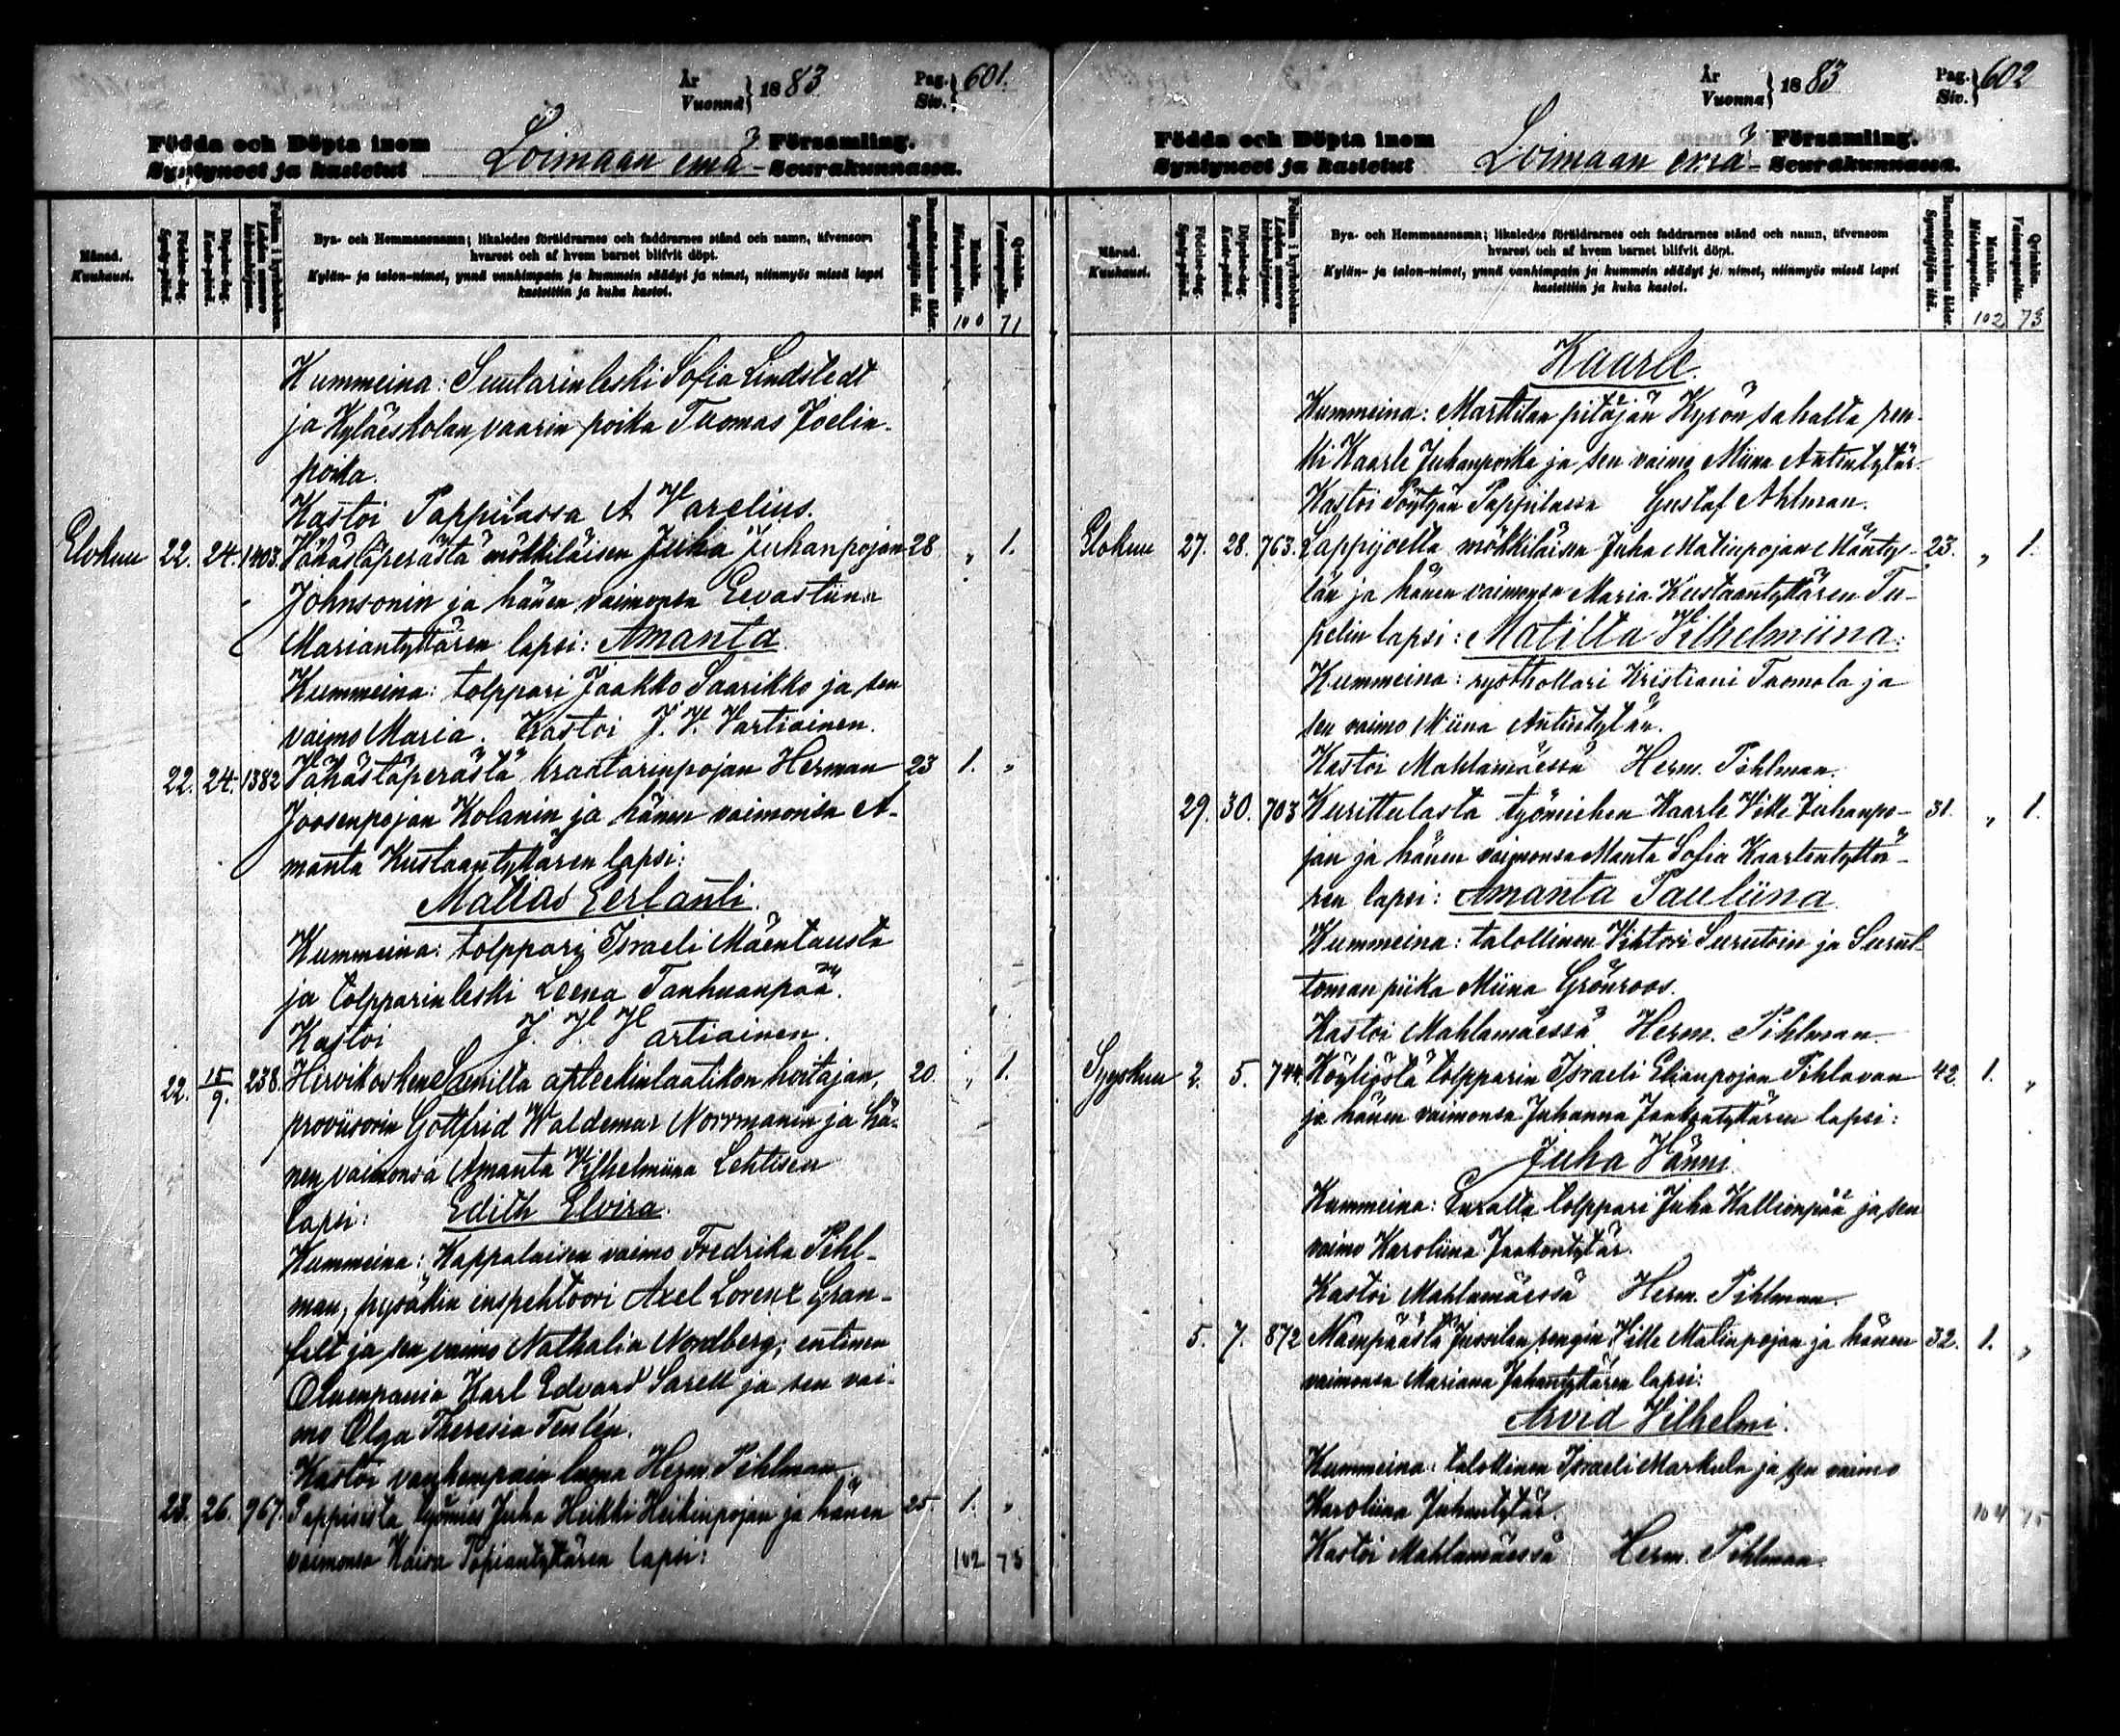 År
Vuonna } 1883
Pag.
Siv. } 601.
Födda och Döpta inom Församling.
Syntyneet ja kastetut Loimaan emä- Seurakunnassa.
Månad.
Kuukausi.
Födelse-dag.
Synty-päivä.
Döpelse-dag.
Kaste-päivä.
Folium i kyrkoboken.
Lehden numero kirkonkirjassa.
Bya- och Hemmansnamn; likaledes föräldrarnes och faddrarnes stånd och namn, äfvensom
hvarest och af hvem barnet blifvit döpt.
Kylän- ja talon-nimet, ynnä vanhimpain ja kummein säädyt ja nimet, niinmyös missä lapsi
kastettiin ja kuka kastoi.
Barnaföderskans ålder.
Synnyttäjän ikä.
Mankön.
Miehenpuolta.
Qvinkön.
Vaimonpuolta.
100 71
Kummeina: Suutarinleski Sofia Lindstedt
ja Kyläeskolan vaarin poika Tuomas Joelin-
poika.
Kastoi Pappilassa A Varelius.
Elokuu 22. 24. 1403. Vähästäperästä mökkiläisen Juha Juhanpojan 28 " 1.
Johnsonin ja hänen vaimonsa Eevastiina
Mariantyttären lapsi: Amanta.
Kummeina: tolppari Jaakko Saarikko ja sen
vaimo Maria. Kastoi J. V. Vartiainen.
22. 24. 1382 Vähästäperästä kraatarinpojan Herman 23 1. "
Joosenpojan Kolanin ja hänen vaimonsa A-
manta Kustaantyttären lapsi:
Mattias Eerlanti.
Kummeina: tolppari Israeli Mäentausta
ja tolpparinleski Leena Tanhuanpää.
Kastoi J. V. Vartiainen.
22. 15/9. 238. Hirvikosken Samilta apteekinlaatikon hoitajan, 20. " 1.
proviisorin Gottfrid Waldemar Norrmanin ja hä-
nen vaimonsa Amanta Vilhelmiina Lehtisen
lapsi: Edith Elvira.
Kummeina: Kappalaisen vaimo Fredrika Pihl-
man, pysäkin inspehtoori Axel Lorenz Gran-
felt ja sen vaimo Nathalia Nordberg; entinen
Oluenpania Karl Edvard Sarell ja sen vai-
mo Olga Theresia Tenlén.
Kastoi vanhempain luona Herm. Pihlman
23. 26. 967. Pappisista työmies Juha Heikki Heikinpojan ja hänen 25 1. "
vaimonsa Kaisa Topiantyttären lapsi: 102 73
År
Vuonna } 1883
Pag.
Siv. } 602
Födda och Döpta inom Församling.
Syntyneet ja kastetut Loimaan emä- Seurakunnassa.
Månad.
Kuukausi.
Födelse-dag.
Synty-päivä.
Döpelse-dag.
Kaste-päivä.
Folium i kyrkoboken.
Lehden numero kirkonkirjassa.
Bya- och Hemmansnamn; likaledes föräldrarnes och faddrarnes stånd och namn, äfvensom
hvarest och af hvem barnet blifvit döpt.
Kylän- ja talon-nimet, ynnä vanhimpain ja kummein säädyt ja nimet, niinmyös missä lapsi
kastettiin ja kuka kastoi.
Barnaföderskans ålder.
Synnyttäjän ikä.
Mankön.
Miehenpuolta.
Qvinkön.
Vaimonpuolta.
102 73
Kaarle.
Kummeina: Marttilan pitäjän Kyrön sahalta ren-
ki Kaarle Juhanpoika ja sen vaimo Miina Antintytär.
Kastoi Pöytyän Pappilassa Gustaf Ahlman.
Elokuu 27. 28. 763. Lappijoelta mökkiläisen Juha Matinpojan Mänty- 23. " 1.
län ja hänen vaimonsa Maria Kustaantyttären Tu-
pelin lapsi: Matilta Vilhelmiina.
Kummeina: rysthollari Kristiani Tuomola ja
sen vaimo Miina Antintytär.
Kastoi Mahlamäessä Herm. Pihlman.
29. 30. 703 Kurittulasta työmiehen Kaarle Ville Juhanpo- 31. " 1.
jan ja hänen vaimonsa Manta Sofia Kaarlentyttä-
ren lapsi: Amanta Pauliina.
Kummeina: talollinen Vihtori Surutoin ja Surut-
toman piika Miina Grönroos.
Kastoi Mahlamäessä Herm. Pihlman.
Syyskuu 2. 5. 744. Köyliöstä tolpparin Israeli Elianpojan Pihlavan 42. 1. "
ja hänen vaimonsa Juhanna Jaakontyttären lapsi:
Juha Vänni.
Kummeina: tolppari Juha Kallionpää ja sen
vaimo Karoliina Jaakontytär.
Kastoi Mahlamäessä Herm. Pihlman.
5. 7. 872 Mäenpäästä Jussilan rengin Ville Matinpojan ja hänen 32. 1. "
vaimonsa Mariana Juhantyttären lapsi:
Arvid Vilhelmi.
Kummeina: talollinen Israeli Markula ja sen vaimo
Karoliina Juhantytär. 104 75
Kastoi Mahlamäessä Herm. Pihlman.